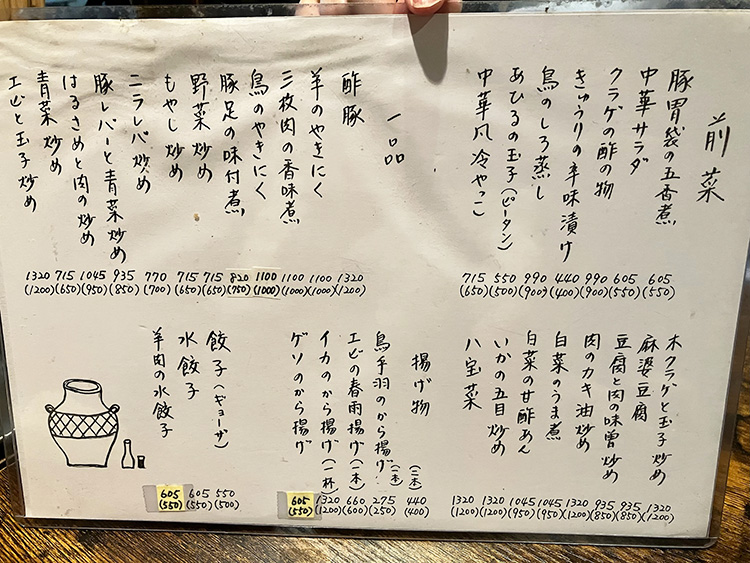 前菜
豚胃袋の五香煮 605 (550)
中華サラダ 605 (550)
クラゲの酢の物 990 (900)
きゅうりの辛味漬け 440 (400)
鳥のしろ蒸し 990 (900)
あひるの玉子(ピータン) 550 (500)
中華風冷やっこ 715 (650)
一品
酢豚 1320 (1200)
羊のやきにく 1100 (1000)
三枚肉の香味煮 1100 (1000)
鳥のやきにく 1100 (1000)
豚足の味付煮 820 (750)
野菜炒め 715 (650)
もやし炒め 715 (650)
ニラレバ炒め 770 (700)
豚レバーと青菜炒め 935 (850)
はるさめと肉の炒め 1045 (950)
青菜炒め 715 (650)
エビと玉子炒め 1320 (1200)
木クラゲと玉子炒め 1320 (1200)
麻婆豆腐 935 (850)
豆腐と肉の味噌炒め 935 (850)
肉のカキ油炒め 1320 (1200)
白菜のうま煮 1045 (950)
白菜の甘酢あん 1045 (950)
いかの五目炒め 1320 (1200)
八宝菜 1320 (1200)
揚げ物
鳥手羽のから揚げ (二本) 440 (400)
(一本) 275 (250)
エビの春雨揚げ(一本) 660 (600)
イカのから揚げ(一杯) 1320 (1200)
ゲソのから揚げ 605 (550)
餃子(ギョーザ) 550 (500)
水餃子 605 (550)
羊肉の水餃子 605 (550)